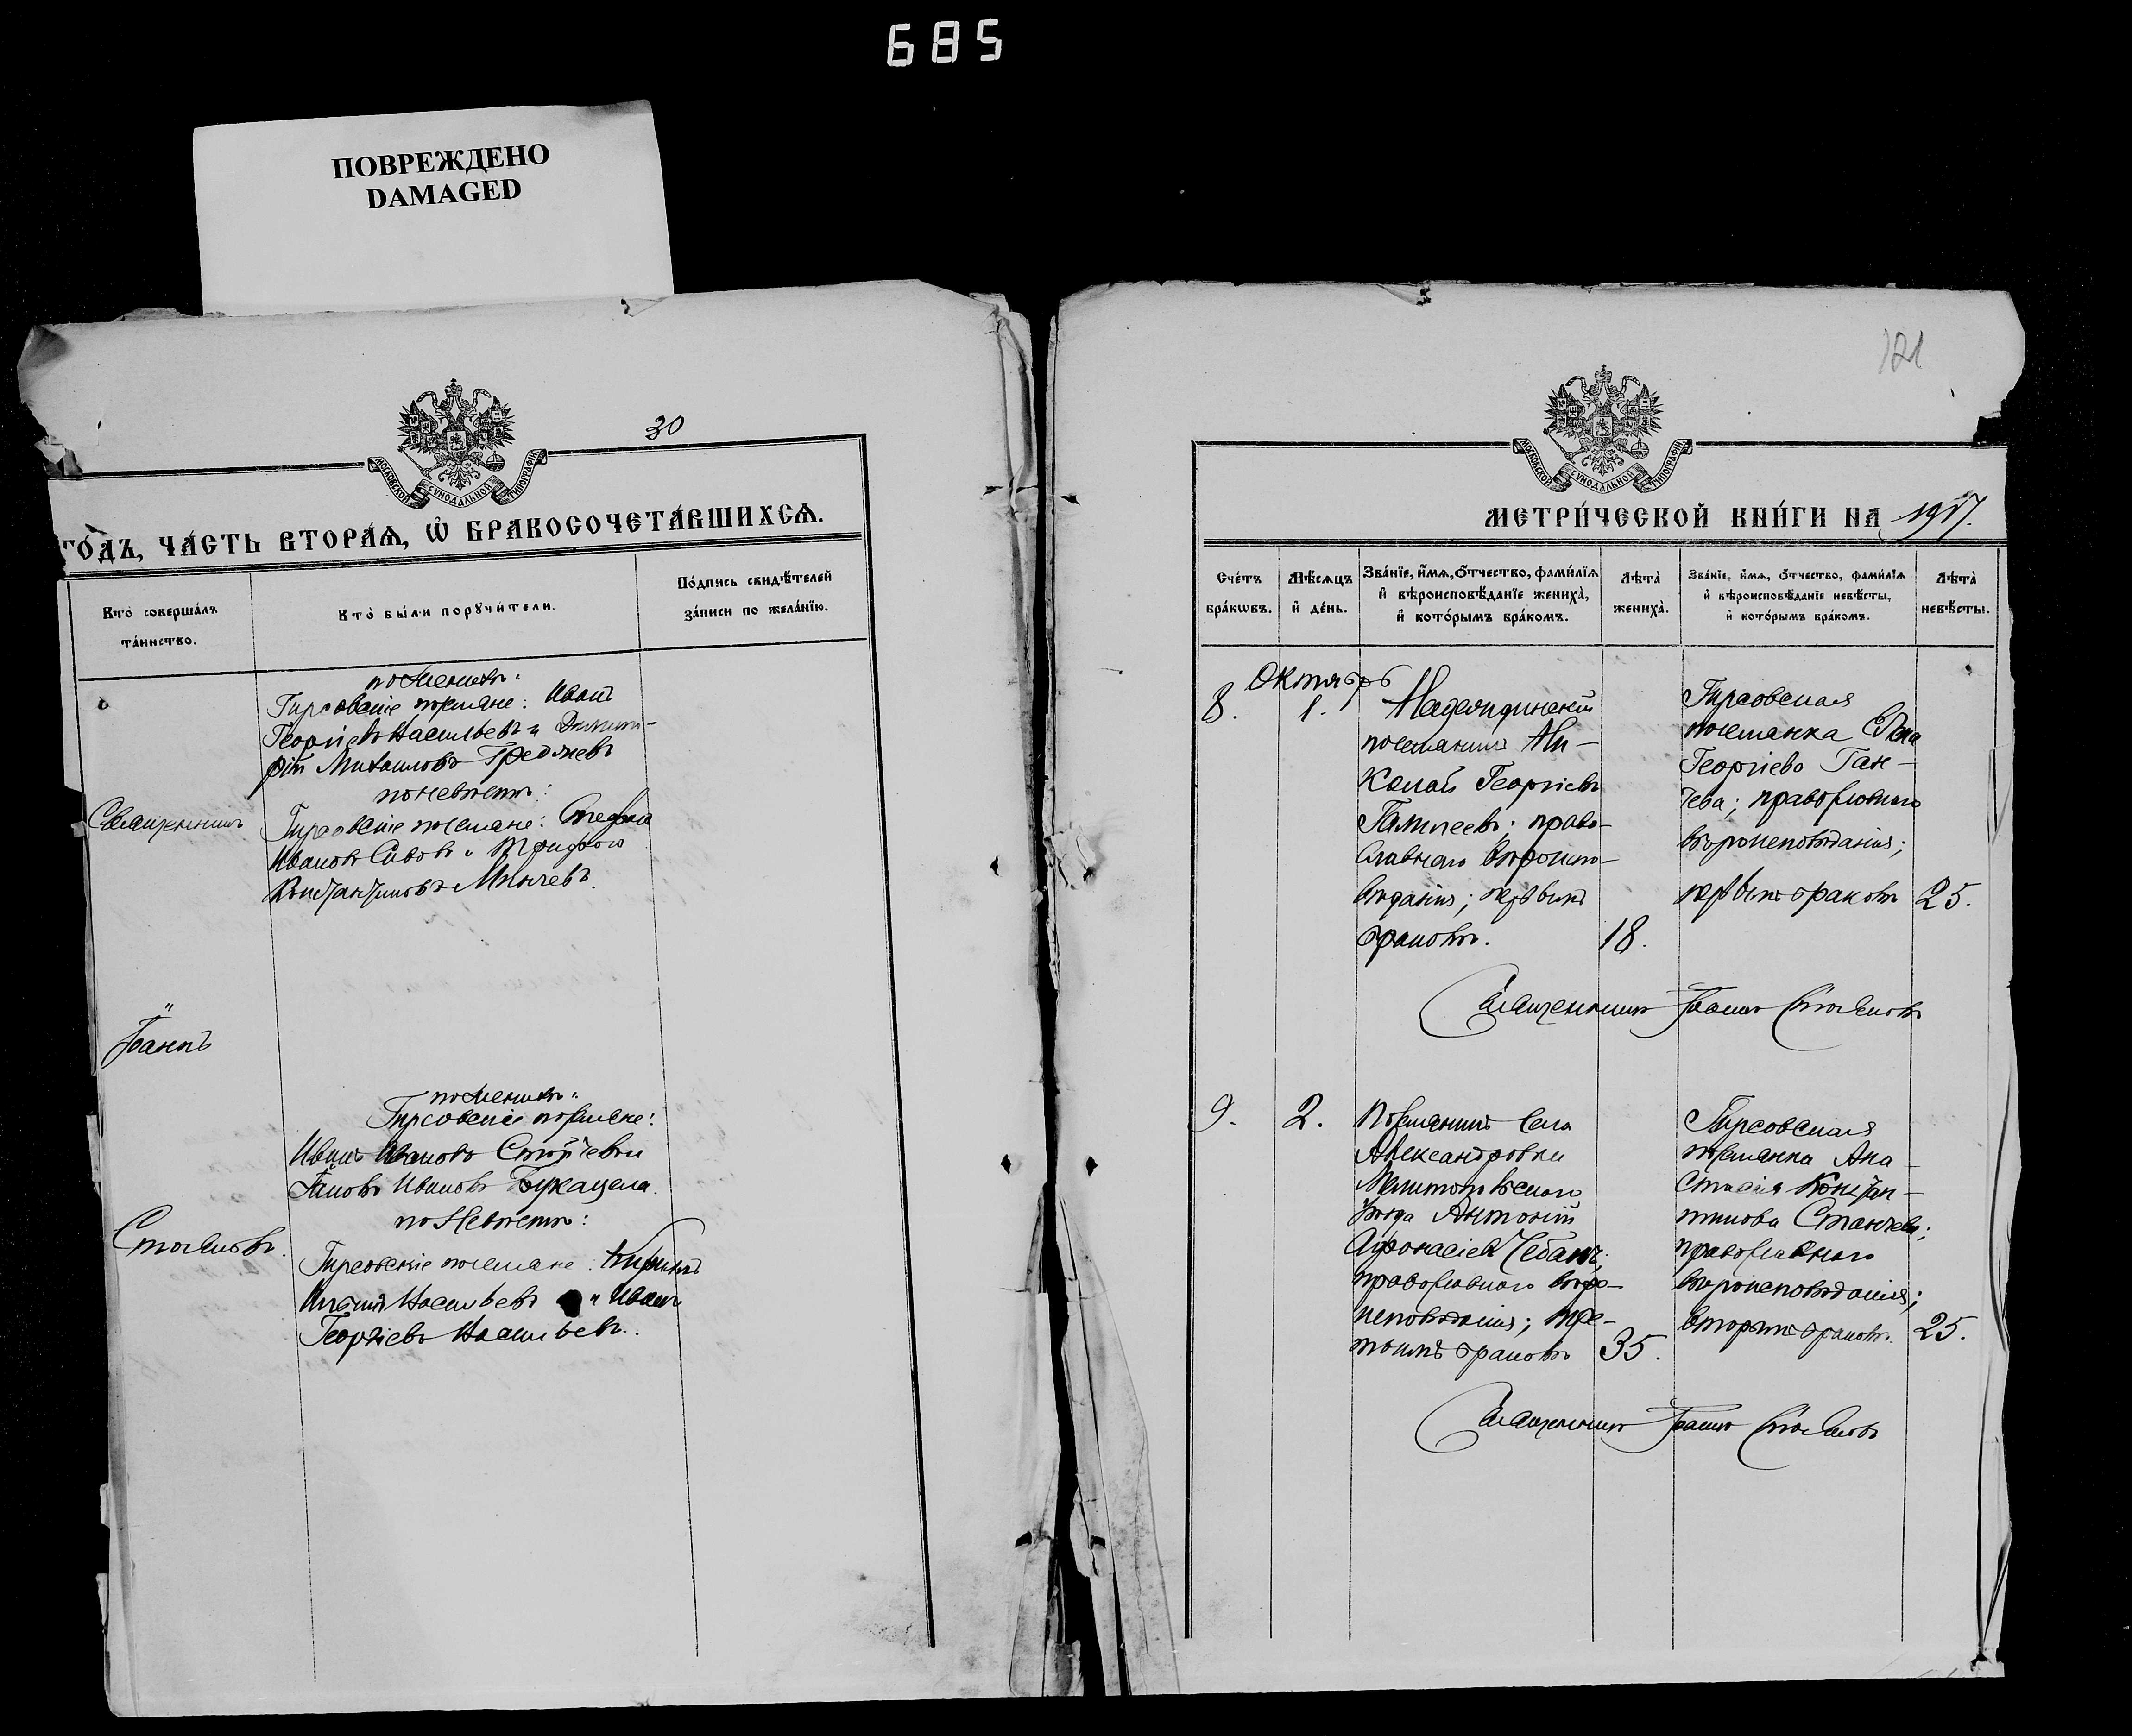 685
ПОВРЕЖДЕНО
DAMAGED
30
МОСКОВСКОЙ СѴНОДАЛЬНОЙ ТИПОГРАФІИ
ГО́ДЪ, ЧА́СТЬ ВТОРА́Ѧ, Ѡ҆ БРАКОСОЧЕТА́ВШИХСѦ.
Кто̀ соверша́лъ
та́инство.
Кто̀ бы́ли порꙋчи́тели.
По́дпись свидѣ́телей
за́писи по жела́нїю.
по женихѣ:
Гирсовскіе поселяне: Иванъ
Георгіевъ Насильевъ и Димит-
рій Михаиловъ
по невѣстѣ:
Священникъ
Гирсовскіе поселяне: Стефанъ
Ивановъ Сивовъ и Трифонъ
Константиновъ Минчевъ.
Іоаннъ
по женихѣ:
Гирсовскіе поселяне:
Иванъ Ивановъ Стойчевъ и
Ивановъ Букацела.
по невѣстѣ:
Стояновъ.
Гирсовскіе поселяне:
Насильевъ и Иванъ
Георгіевъ Насильевъ.
121
МОСКОВСКОЙ СѴНОДАЛЬНОЙ ТИПОГРАФІИ
МЕТРИ́ЧЕСКОЙ КНИ́ГИ НА 1917.
Сче́тъ
бра́кѡвъ.
Мѣ́сѧцъ
и҆ де́нь.
Зва́нїе, и҆́мѧ, ѻ҆́тчество, фами́лїѧ
и҆ вѣроисповѣ́данїе жениха̀,
и҆ кото́рымъ бра́комъ.
Лѣ́та
жениха̀.
Зва́нїе, и҆́мѧ, ѻ҆́тчество, фами́лїѧ
и҆ вѣроисповѣ́данїе невѣ́сты,
и҆ кото́рымъ бра́комъ.
Лѣ́та
невѣ́сты.
Октябрь
8.
1.
поселянинъ Ни-
колай Георгіевъ
право-
славнаго вѣроиспо-
вѣданія; первымъ
бракомъ.
18.
Гирсовская
поселянка
Георгіева Ган-
чева; православнаго
вѣроисповѣданія;
первымъ бракомъ
25.
Священникъ Іоаннъ Стояновъ
9.
2.
Поселянинъ села
Александровки
Мелитопольскаго
уѣзда Антоній
Аѳонасіевъ Чебанъ;
православнаго вѣро-
исповѣданія; тре-
тьимъ бракомъ
35.
Гирсовская
поселянка Ана-
стасія Констан-
тинова Станчева;
православнаго
вѣроисповѣданія;
вторымъ бракомъ.
25.
Священникъ Іоаннъ Стояновъ